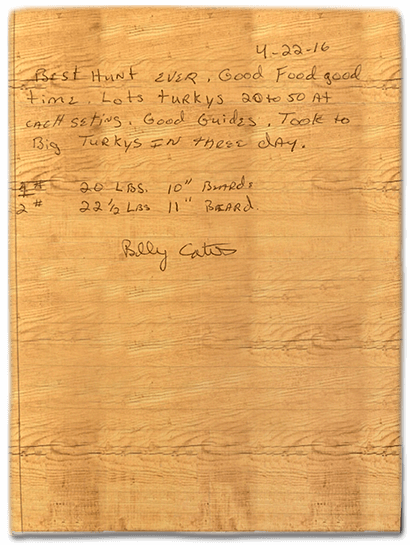 4-22-16
Best Hunt ever. Good Food good
time. Lots turkys 20 to 50 at
each seting. Good Guides. Took to
Big Turkys in three day.
1# 20 Lbs. 10" Beards
2# 22 1/2 Lbs 11" Beard.
Billy Cates